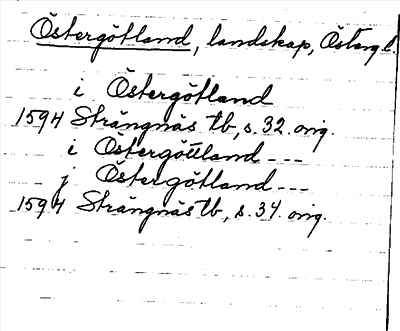 Östergötland, landskap, Östergl.
i Östergötland
1594 Strängnäs tb, s. 32. orig.
i Östergöttland ---
j Östergötland ---
1594 Strängnäs tb, s. 34. orig.